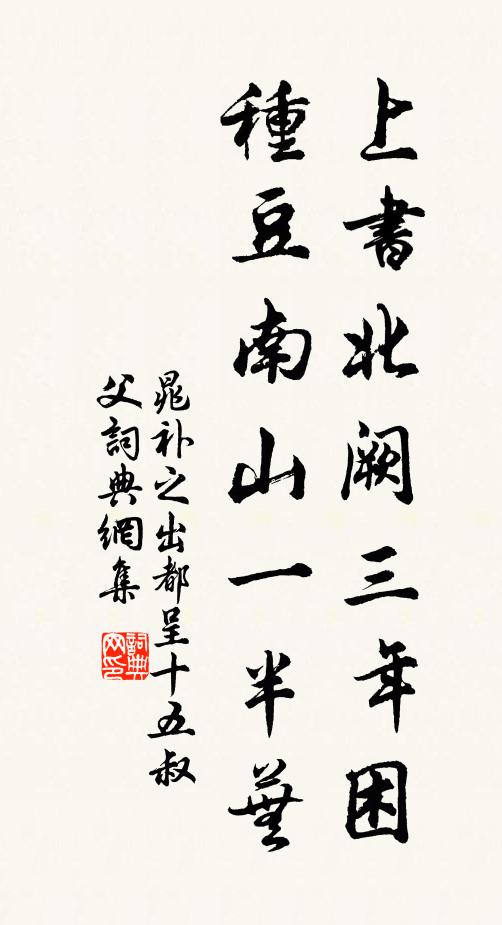 上書北闕三年困
種豆南山一半蕪
晁补之出都呈十五叔
父詞典網集
詞典
网印